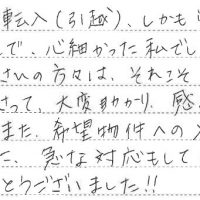 転入(引越)、しかも
で、心細かった私でし
さいの方々は、それこそ
さって、大変助かり、感
また、希望物件への入
た、急な対応もして
とうございました!!